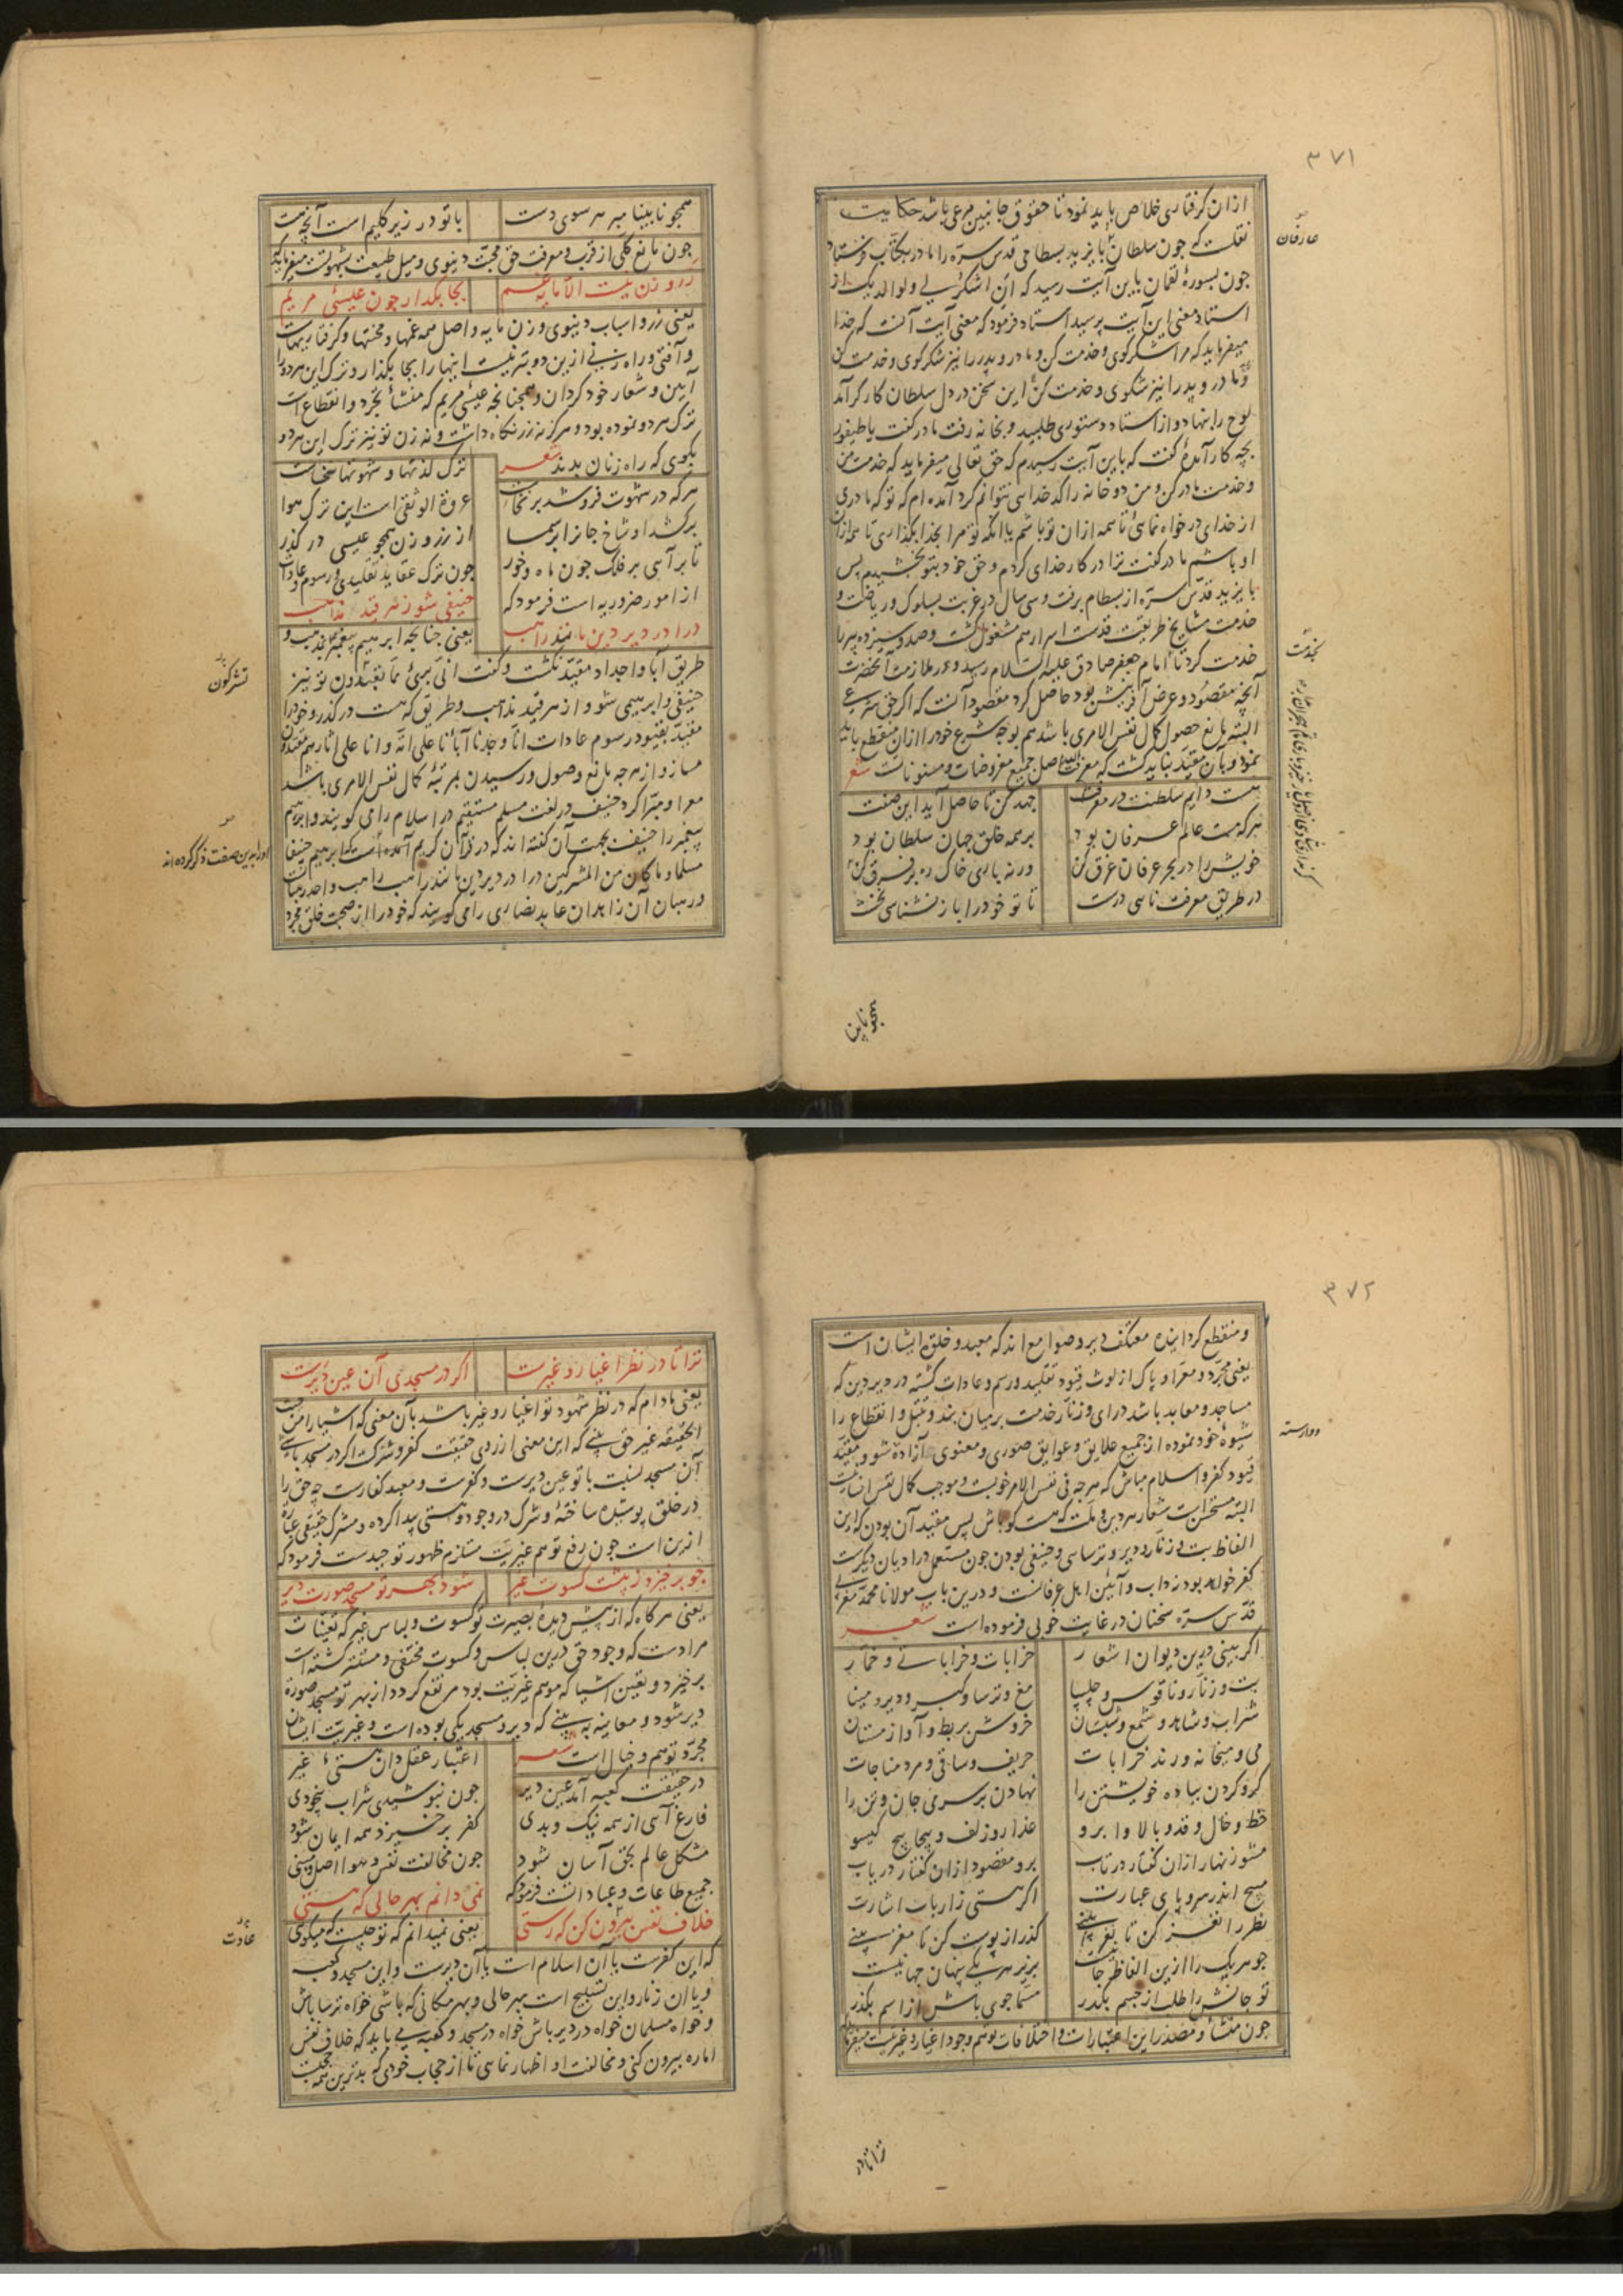 ۳۷۱
ازان گرفتاری خلاص باید نمود تا حقوق جانبین مرعی باشد حکایت
نقلست که چون سلطان بایزید بسطامی قدس سره را مادر بمکتب فرستاد
چون بسورهٔ لقمان باین آیت رسید که ان اشکر لی ولوالدیک از
استاد معنی این آیت پرسید استاد فرمود که معنی آیت آنست که خدا
میفرماید که مرا شکر کوی و خدمت کن و مادر و پدر را نیز شکر کوی و خدمت کن
و مادر و پدر را نیز شکوی و خدمت کن این سخن در دل سلطان کار کر آمد
لوح را بنهاد و از استاد دستوری طلبید و بخانه رفت مادر کفت یا طیفور
بچه کار آمدهٔ کفت که باین آیت رسیدم که حق تعالی میفرماید که خدمت من
و خدمت مادر کن و من دو خانه را کدخدایی نتوانم کرد آمده ام که تو که مادری
از خدای درخواه نمائی تا همه ازان تو باشم یا آنکه تو مرا بخدا بگذاری تا همه ازان
او باشم مادر کفت ترا در کار خدای کردم و حق خود بتو بخشیدم پس
بایزید قدس سره از بسطام برفت و سی سال در غربت بسلوک و ریاضت و
خدمت مشایخ طریقت قدست اسرارهم مشغول کشت و صد و سیزده پیر را
خدمت کرد تا امام جعفر صادق علیه السلام رسید و در ملازمت آنحضرت
آنچه مقصود و غرض آفرینش بود حاصل کرد مقصود آنست که اگر حق شرعی
البته مانع حصول کمال نفس الامری باشد هم بوجه شرع خود را ازان منقطع باید
نمود و بآن مقید نباید کشت که معرفت الله اصل جمیع مفروضات و مسنوناتست شعر
هست دایم سلطنت در معرفت
جهد کن تا حاصل آید این صفت
هر که مست عالم عرفان بود
بر همه خلق جهان سلطان بود
خویش را در بحر عرفان غرق کن
ورنه باری خاک ره بر فرق کن
در طریق معرفت تا سی درست
تا تو خود را باز نشناسی نخست
عارفان
بخدمت
همچو نابینا
همچو نابینا مبر هر سوی دست
با تو در زیر کلیم است آنچه هست
چون مانع کلی از قرب و معرفت حق محبت دنیوی و میل طبیعت بشهوتست میفرماید که
زر و زن نیست الا مایه غم
بجا بگذار چون عیسی مریم
یعنی زر و اسباب دنیوی و زن مایه و اصل همه غمها و محنتها و گرفتاریهاست
و آفتی و راه زنی ازین دو بتر نیست اینها را بجا بگذار و ترک این هر دو را
آیین و شعار خود کردان و همچنانچه عیسی مریم که منشأ تجرد و انقطاع است
ترک هر دو نموده بود و هرگز نه زر نگاه داشت و نه زن تو نیز ترک این هر دو
بگوی که راه زنان بدند شعر
ترک لذتها و شهوتها سخاست
هر که در شهوت فرو شد برنخاست
عروة الوثقی است این ترک هوا
برکشد او شاخ جانرا بر سما
از زر و زن همچو عیسی در کذر
تا برآیی بر فلک چون ماه و خور
چون ترک عقاید تقلیدی و رسوم و عادات
از امور ضروریه است فرمود که
حنیفی شو ز هر قید مذاهب
درا در دیر دین مانند راهب
یعنی چنانچه ابراهیم پیغمبر بمذهب و
طریق آبا و اجداد مقید نکشت و کفت انی بریء مما تعبدون تو نیز
حنیفی و ابراهیمی شو و از هر قید مذاهب و طریق که هست در کذر و خود را
مقید بقیود رسوم عادات انا وجدنا آباءنا علی امة وانا علی آثارهم مقتدون
مساز و از هر چه مانع وصول و رسیدن بمرتبهٔ کمال نفس الامری باشد
معرا و مبرا کرد حنیف در لغت مسلم مستقیم در اسلام را می کویند و ابراهیم
پیغمبر را حنیف بجهت آن کفته اند که در قرآن کریم آمده است که ابراهیم حنیفا
مسلما و ما کان من المشرکین درا در دیر دین مانند راهب راهب واحد رهبان است
و رهبان آن زاهدان عابد نصاری را می کویند که خود را از صحبت خلق مجرد
تشرکون
او را بدین صفت ذکر کرده اند
۳۷۲
و منقطع کردانیده معتکف دیر و صوامع اند که معبد و خلوت ایشان است
یعنی مجرد و معرا و پاک از لوث قیود تقلید و رسم و عادات کشته در دیر دین که
مساجد و معابد باشد درای و زنار خدمت بر میان بند و تبتل و انقطاع را
شیوهٔ خود نموده از جمیع علایق و عوایق صوری و معنوی آزاده شو و مقید
قیود کفر و اسلام مباش که هر چه فی نفس الامر خوبست و موجب کمال نفس انسانیت
البته مستحسن است شعار هر دین و ملت که هست کو باش پس مقید آن بودن که این
الفاظ بت و زنار و دیر و ترسایی و حنیفی بودن چون مستعمل در ادیان دیگرست
کفر خواهد بود نه داب و آیین اهل عرفانست و درین باب مولانا محمد مغربی
قدس سره سخنان در غایت خوبی فرموده است شعر
اگر بینی درین دیوان اشعار
خرابات و خراباتی و خمار
بت و زنار و ناقوس و چلیپا
مغ و ترسا و کبر و دیر و مینا
شراب و شاهد و شمع و شبستان
خروش بربط و آواز مستان
می و میخانه و رند خرابات
حریف و ساقی و مرد مناجات
کرو کردن بباده خویشتن را
نهادن بر سر می جان و تن را
خط و خال و قد و بالا و ابرو
عذار و زلف و پیچاپیچ کیسو
مشو زنهار ازان کفتار در تاب
برو مقصود ازان کفتار دریاب
مپیچ اندر سر و پای عبارت
اگر هستی ز ارباب اشارت
نظر را نغز کن تا نغز بینی
کذر از پوست کن تا مغز بینی
چو هر یک را ازین الفاظ جانیست
بزیر هر یکی پنهان جهانیست
تو جانش را طلب از جسم بگذر
مسما جوی باش از اسم بگذر
چون منشأ و مصدر این اعتبارات و اختلافات توهم وجود اغیار و غیریت است میفرماید
وارسته
ترا تا در
ترا تا در نظر اغیار و غیرست
اگر در مسجدی آن عین دیرست
یعنی مادام که در نظر شهود تو اغیار و غیر باشد بآن معنی که اشیا را من حیث
الحقیقه غیر حق بینی که این معنی از روی حقیقت کفر و شرکست اگر در مسجد باشی
آن مسجد نسبت با تو عین دیرست و کفرست و معبد کفارست چه حق را
در خلق پوشیده ساختهٔ و شرک در وجود و هستی پیدا کرده و مشرک حقیقی عبارة
ازین است چون رفع توهم غیریت مستلزم ظهور توحیدست فرمود که
چو برخیزد ز پیشت کسوت غیر
شود بهر تو مسجد صورت دیر
یعنی هر گاه که از پیش دیدهٔ بصیرت تو کسوت و لباس غیر که تعینات
مرادست که وجود حق درین لباس و کسوت مختفی و مستتر کشته است
برخیزد و تعین اشیا که موهم غیریت بود مرتفع کردد از بهر تو مسجد صورة
دیر شود و معاینه به بینی که دیر و مسجد یکی بوده است و غیریت ایشان
مجرد توهم و خیال است شعر
اعتبار عقل دان هستی غیر
در حقیقت کعبه آمد عین دیر
چون بنوشیدی شراب بیخودی
فارغ آیی از همه نیک و بدی
کفر برخیزد همه ایمان شود
مشکل عالم بحق آسان شود
چون مخالفت نفس و هوا اصل و مبنی
جمیع طاعات و عباداتست فرمود که
نمی دانم بهر حالی که هستی
خلاف نفس بیرون کن که رستی
یعنی نمیدانم که تو چیست که میکوی
که این کفرست یا آن اسلام است یا آن دیرست و این مسجد و کعبه
و یا آن زنار و این تسبیح است بهر حالی و بهر مکانی که باشی خواه ترسا باش
و خواه مسلمان خواه در دیر باش خواه در مسجد و کعبه می باید که خلاف نفس
اماره بیرون کنی و مخالفت او اظهار نمایی تا از حجاب خودی که بدترین همه حجبست
عادت